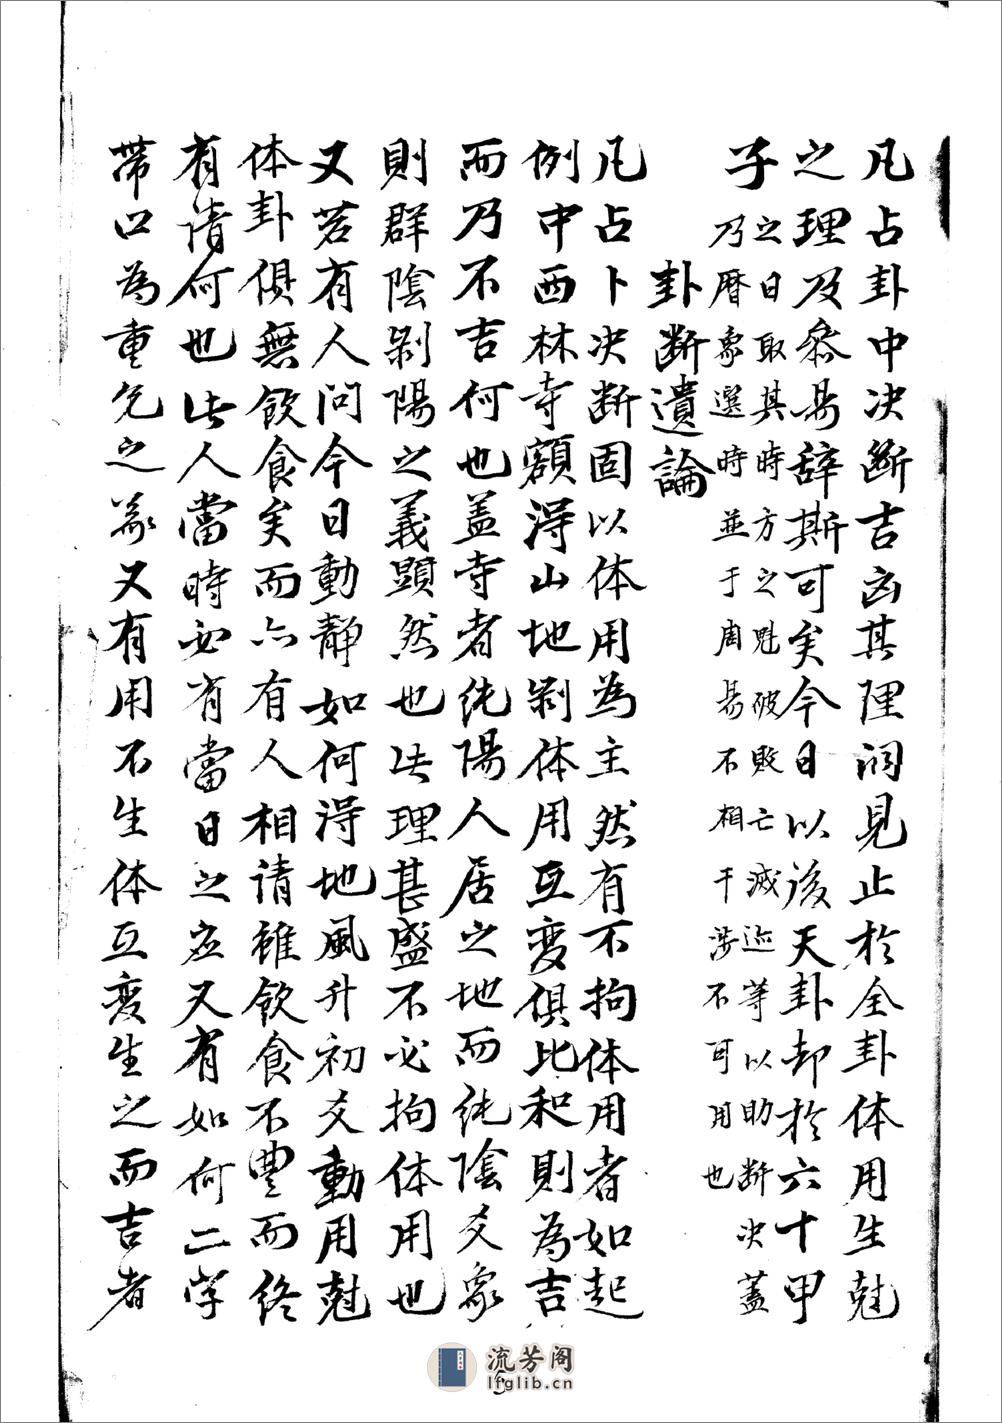 凡占卦中决断吉凶其理洞見止於全卦体用生尅
之理及叅易辞斯可矣今日以後天卦却於六十甲
子
之日取其時方之魁破败亡滅迹等以助断决蓋
乃曆象選時並于周易不相干涉不可用也
卦断遺論
凡占卜决断固以体用為主然有不拘体用者如起
例中西林寺額淂山地剥体用互变俱比和則為吉
而乃不吉何也盖寺者纯陽人居之地而纯陰爻象
則群陰剥陽之義顕然也此理甚盛不必拘体用也
又若有人问今日動静如何淂地風升初爻動用尅
体卦俱無飲食矣而亦有人相請雖飲食不豊而终
有請何也此人當時必有當日之应又有如何二字
带口為重兑之义又有用不生体互变生之而吉者
流芳阁
lfglib.cn